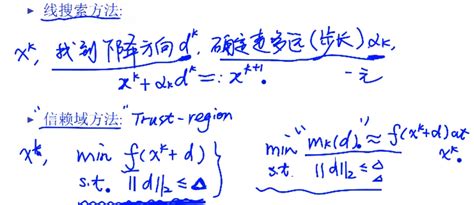 ▸ 线搜索方法:
x^k, 找到下降方向d^k, 确定走多远(步长)α_k,
x^k + α_k d^k =: x^{k+1}. 一元
▸ "信赖域方法:" Trust-region
x^k, min f(x^k+d) } min "m_k(d)" ≈ f(x^k+d) at x^k.
s.t. ||d||_2 ≤ Δ } s.t. ||d||_2 ≤ Δ